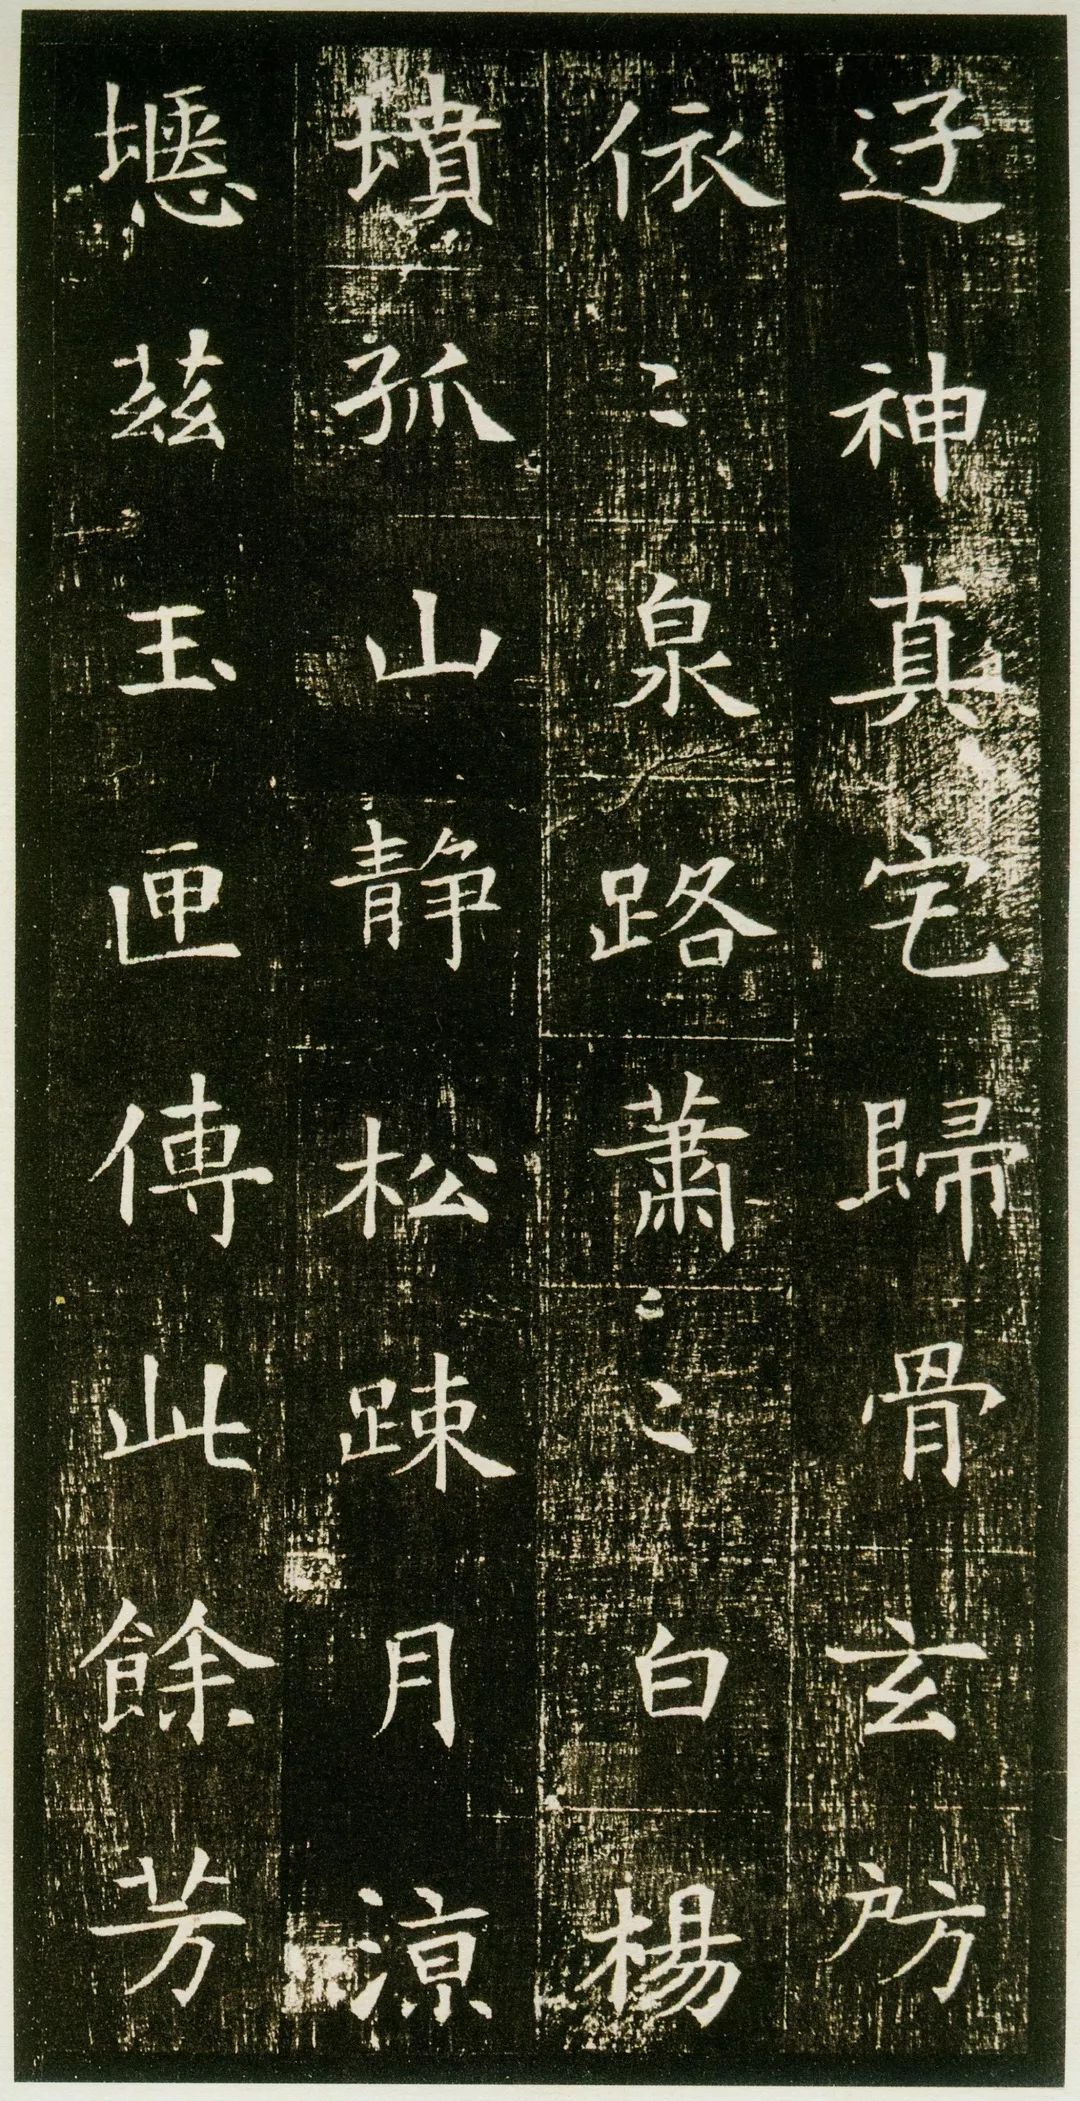 迓神真宅歸骨玄房
依〻泉路蕭〻白楊
墳孤山静松踈月涼
瘞兹玉匣傳此餘芳